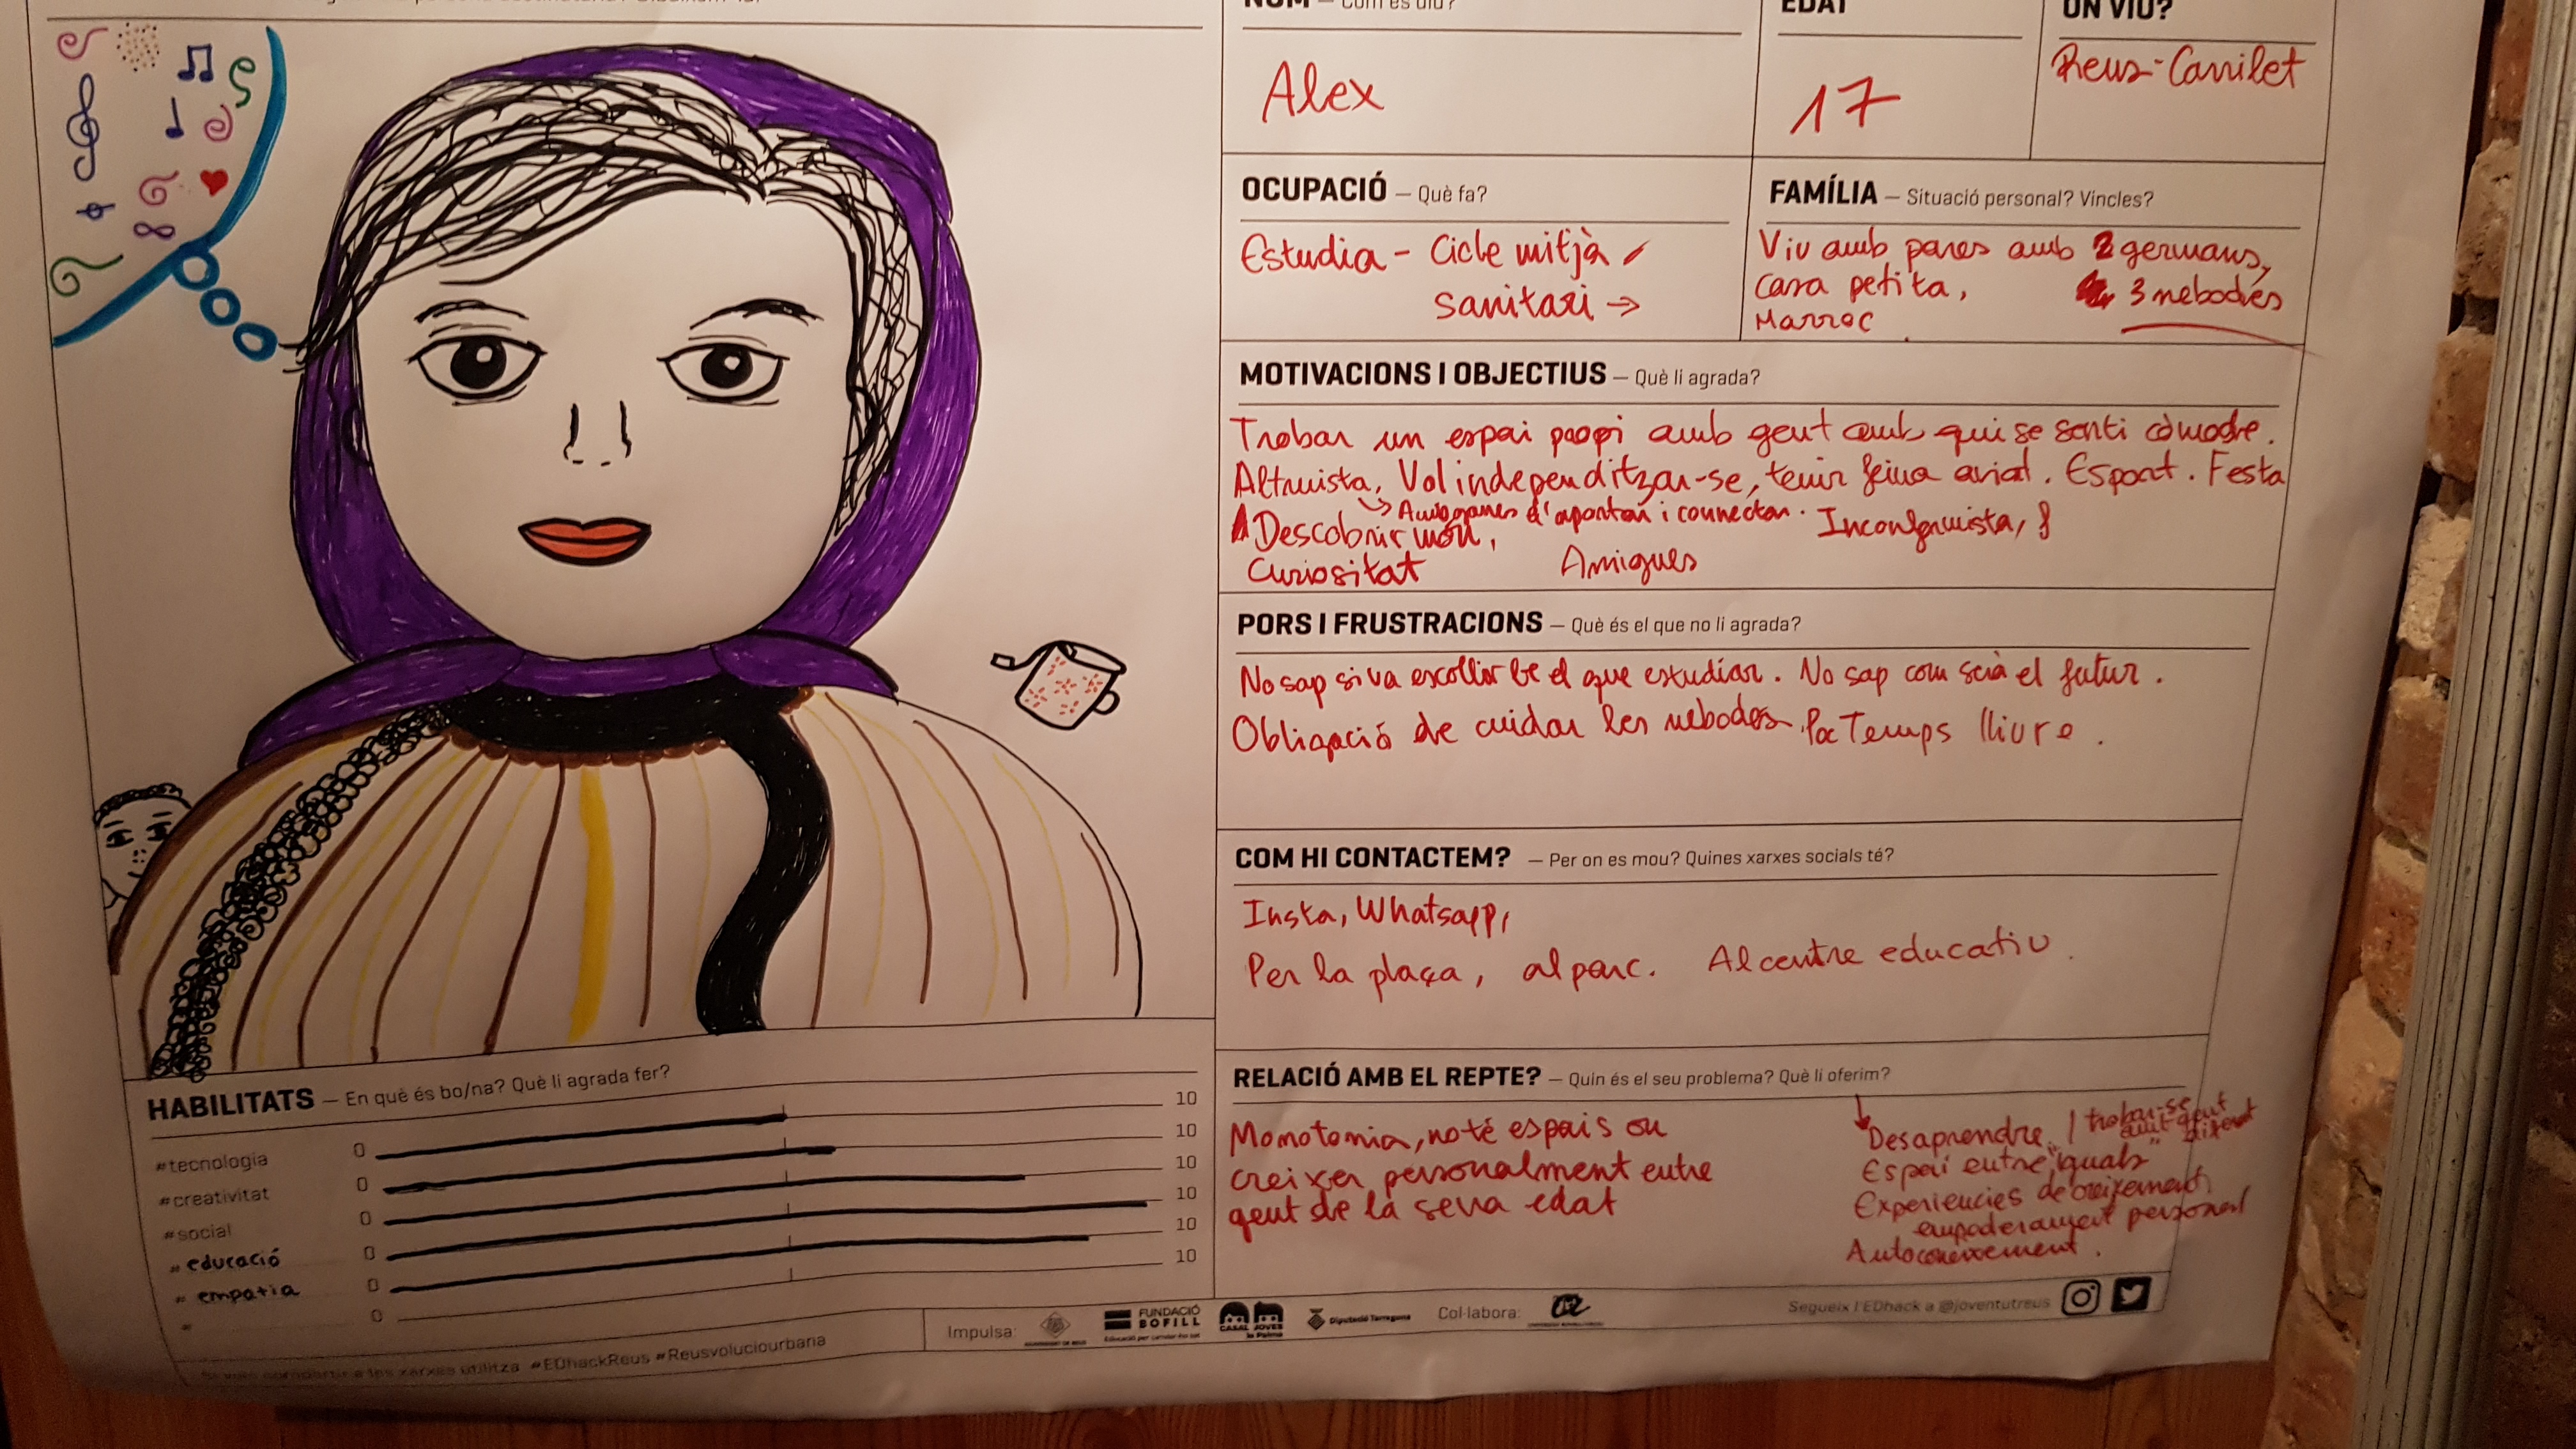 NOM — Com es diu?
Alex
EDAT
17
ON VIU?
Reus-Carrilet
OCUPACIÓ — Què fa?
Estudia - Cicle mitjà
sanitari →
FAMÍLIA — Situació personal? Vincles?
Viu amb pares amb 2 germans,
casa petita, 3 nebodes
Marroc
MOTIVACIONS I OBJECTIUS — Què li agrada?
Trobar un espai propi amb gent amb qui se senti còmode.
Altruista, Vol independitzar-se, tenir feina aviat. Esport. Festa
↳ Amb ganes d'aportar i connectar. Inconformista,
Descobrir món,
Curiositat Amigues
PORS I FRUSTRACIONS — Què és el que no li agrada?
No sap si va escollir bé el que estudiar. No sap com serà el futur.
Obligació de cuidar les nebodes. Poc Temps lliure.
COM HI CONTACTEM? — Per on es mou? Quines xarxes socials té?
Insta, Whatsapp,
Per la plaça, al parc. Al centre educatiu.
RELACIÓ AMB EL REPTE? — Quin és el seu problema? Què li oferim?
Monotonia, no té espais on
creixer personalment entre
gent de la seva edat
Desaprendre / trobar-se
amb gent
diferent
Espai entre "iguals"
Experiencies de creixement,
empoderament personal
Autoconeixement.
HABILITATS — En què és bo/na? Què li agrada fer?
#tecnologia 0 10
#creativitat 0 10
#social 0 10
# educació 0 10
# empatia 0 10
# 0 10
Impulsa:
AJUNTAMENT DE REUS
FUNDACIÓ
BOFILL
Educació per canviar-ho tot
CASAL JOVES
la Palma
Diputació Tarragona
Col·labora:
Segueix l'EDhack a @joventutreus
Si vols compartir a les xarxes utilitza #EDhackReus #Reusvoluciourbana